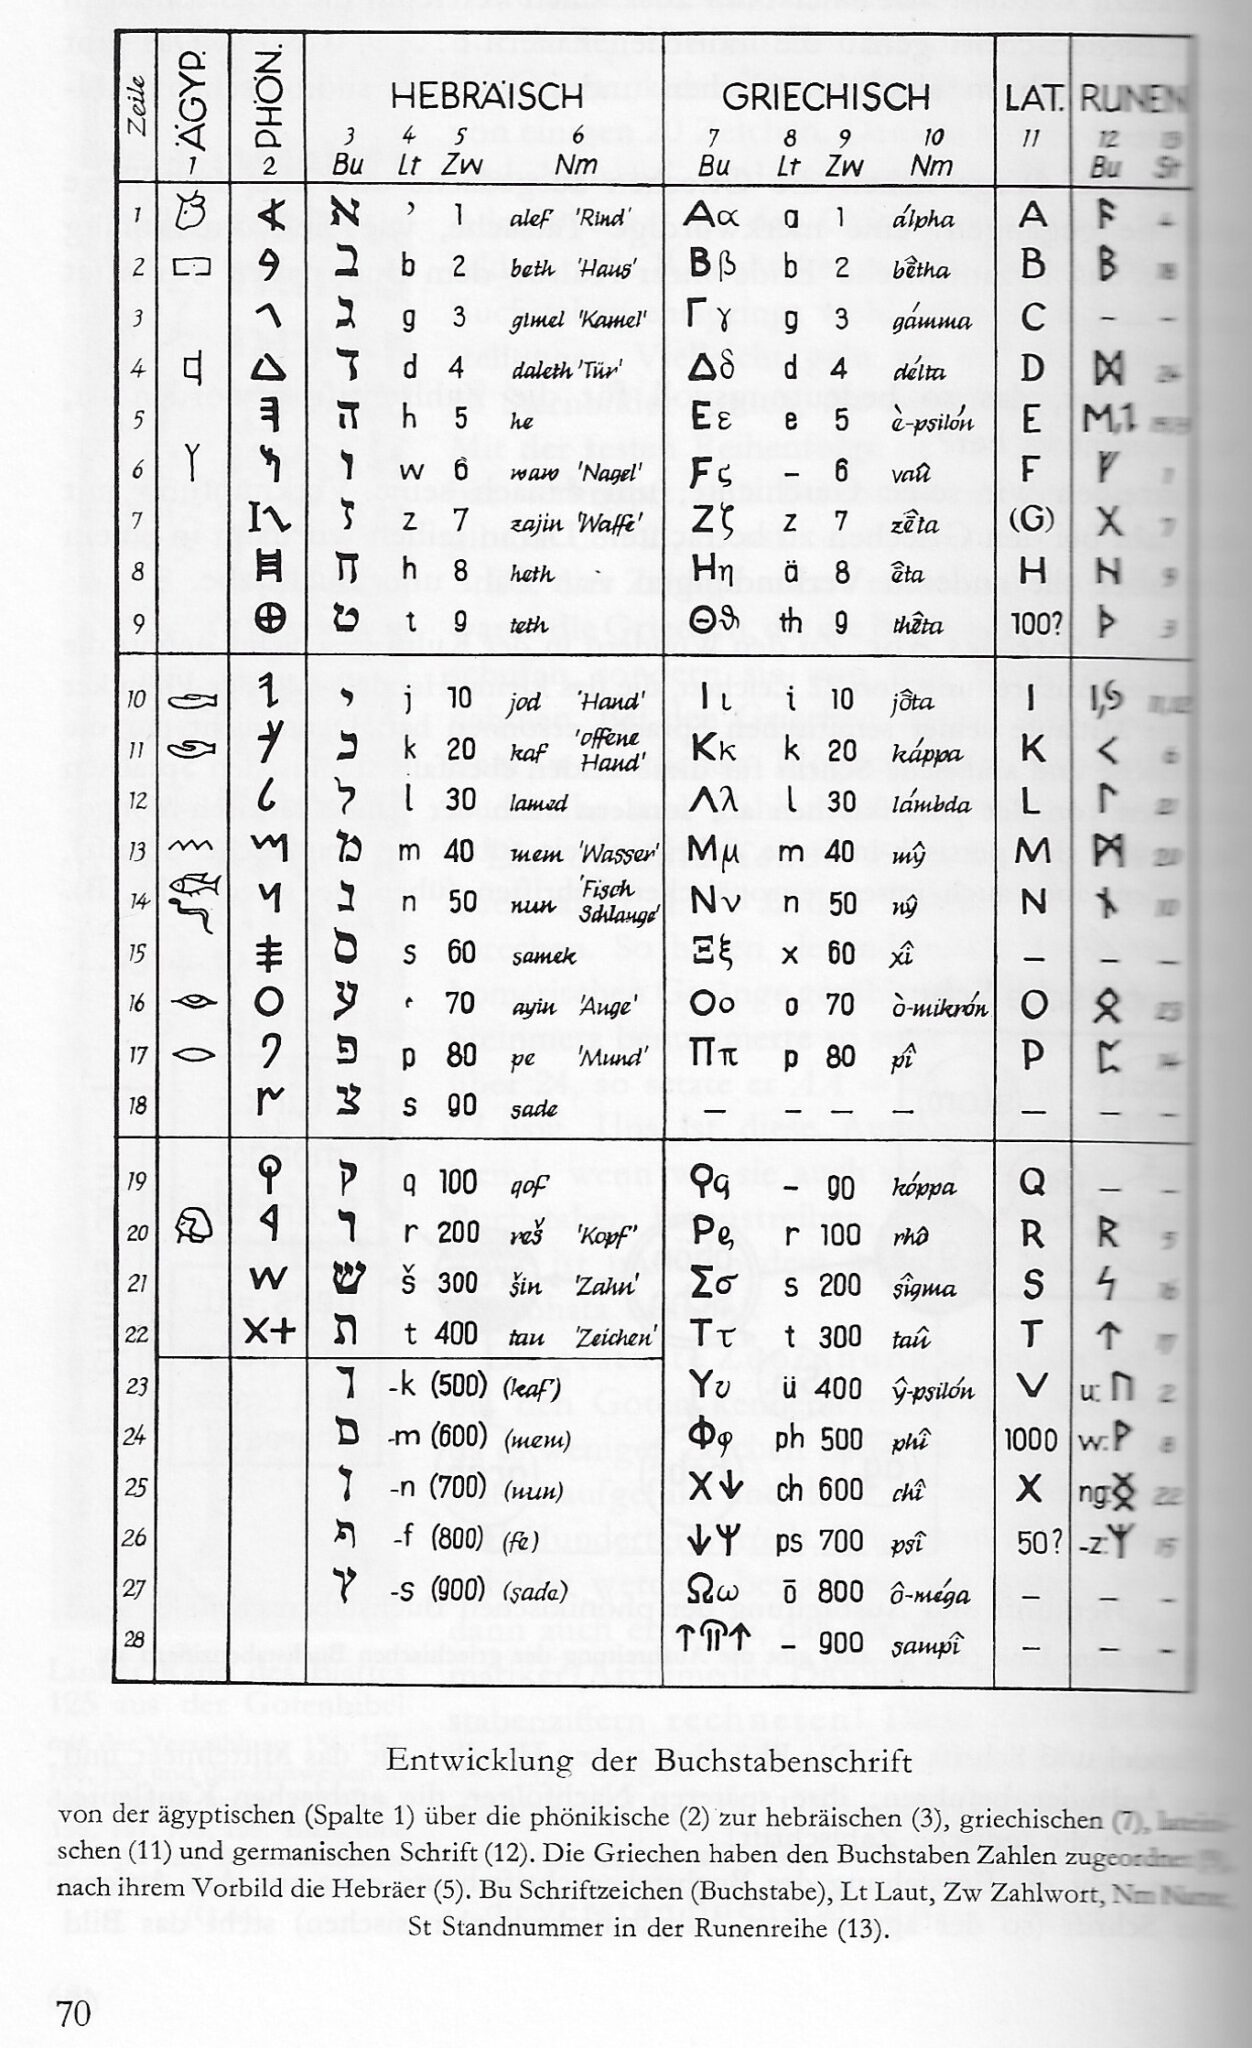 Zeile ÄGYP. PHÖN. HEBRÄISCH GRIECHISCH LAT. RUNEN
1 2 3 4 5 6 7 8 9 10 11 12 13
Bu Lt Zw Nm Bu Lt Zw Nm Bu St
1 א ʼ 1 alef 'Rind' Αα a 1 álpha A ᚨ 4
2 ב b 2 beth 'Haus' Ββ b 2 bêtha B ᛒ 18
3 ג g 3 gimel 'Kamel' Γγ g 3 gámma C – –
4 ד d 4 daleth 'Tür' Δδ d 4 délta D ᛞ 24
5 ה h 5 he Εε e 5 è-psilón E
6 ו w 6 waw 'Nagel' Ϝς – 6 vaû F ᚠ 1
7 ז z 7 zajin 'Waffe' Ζζ z 7 zêta (G) ᚷ 7
8 ח h 8 heth Ηη ä 8 êta H ᚺ 9
9 ט t 9 teth Θϑ th 9 thêta 100? ᚦ 3
10 י j 10 jod 'Hand' Ιι i 10 jôta I
11 כ k 20 kaf 'offene Hand' Κκ k 20 káppa K ᚲ 6
12 ל l 30 lamed Λλ l 30 lámbda L ᛚ 21
13 מ m 40 mem 'Wasser' Μμ m 40 mŷ M 20
14 נ n 50 nun 'Fisch Schlange' Νν n 50 nŷ N ᚾ 10
15 ס s 60 samek Ξξ x 60 xî – – –
16 ע ʿ 70 ayin 'Auge' Οο o 70 ò-mikrón O ᛟ 23
17 פ p 80 pe 'Mund' Ππ p 80 pî P ᛈ 14
18 צ s 90 sade – – – – – – –
19 ק q 100 qof Ϙq – 90 kóppa Q – –
20 ר r 200 reš 'Kopf' Ρϱ r 100 rhô R ᚱ 5
21 ש š 300 šin 'Zahn' Σσ s 200 sîgma S ᛋ 16
22 ת t 400 tau 'Zeichen' Ττ t 300 taû T ᛏ 17
23 ך -k (500) (kaf) Υυ ü 400 ŷ-psilón V u: ᚢ 2
24 ם -m (600) (mem) Φφ ph 500 phî 1000 w: ᚹ 8
25 ן -n (700) (nun) Χ↓ ch 600 chî X ng: 22
26 ף -f (800) (fe) ↓Ψ ps 700 psî 50? -z: ᛉ 15
27 ץ -s (900) (sade) Ωω ō 800 ô-méga – –
28 – 900 sampî – – –
Entwicklung der Buchstabenschrift
von der ägyptischen (Spalte 1) über die phönikische (2) zur hebräischen (3), griechischen (7), lateini-
schen (11) und germanischen Schrift (12). Die Griechen haben den Buchstaben Zahlen zugeordnet (9),
nach ihrem Vorbild die Hebräer (5). Bu Schriftzeichen (Buchstabe), Lt Laut, Zw Zahlwort, Nm Name,
St Standnummer in der Runenreihe (13).
70